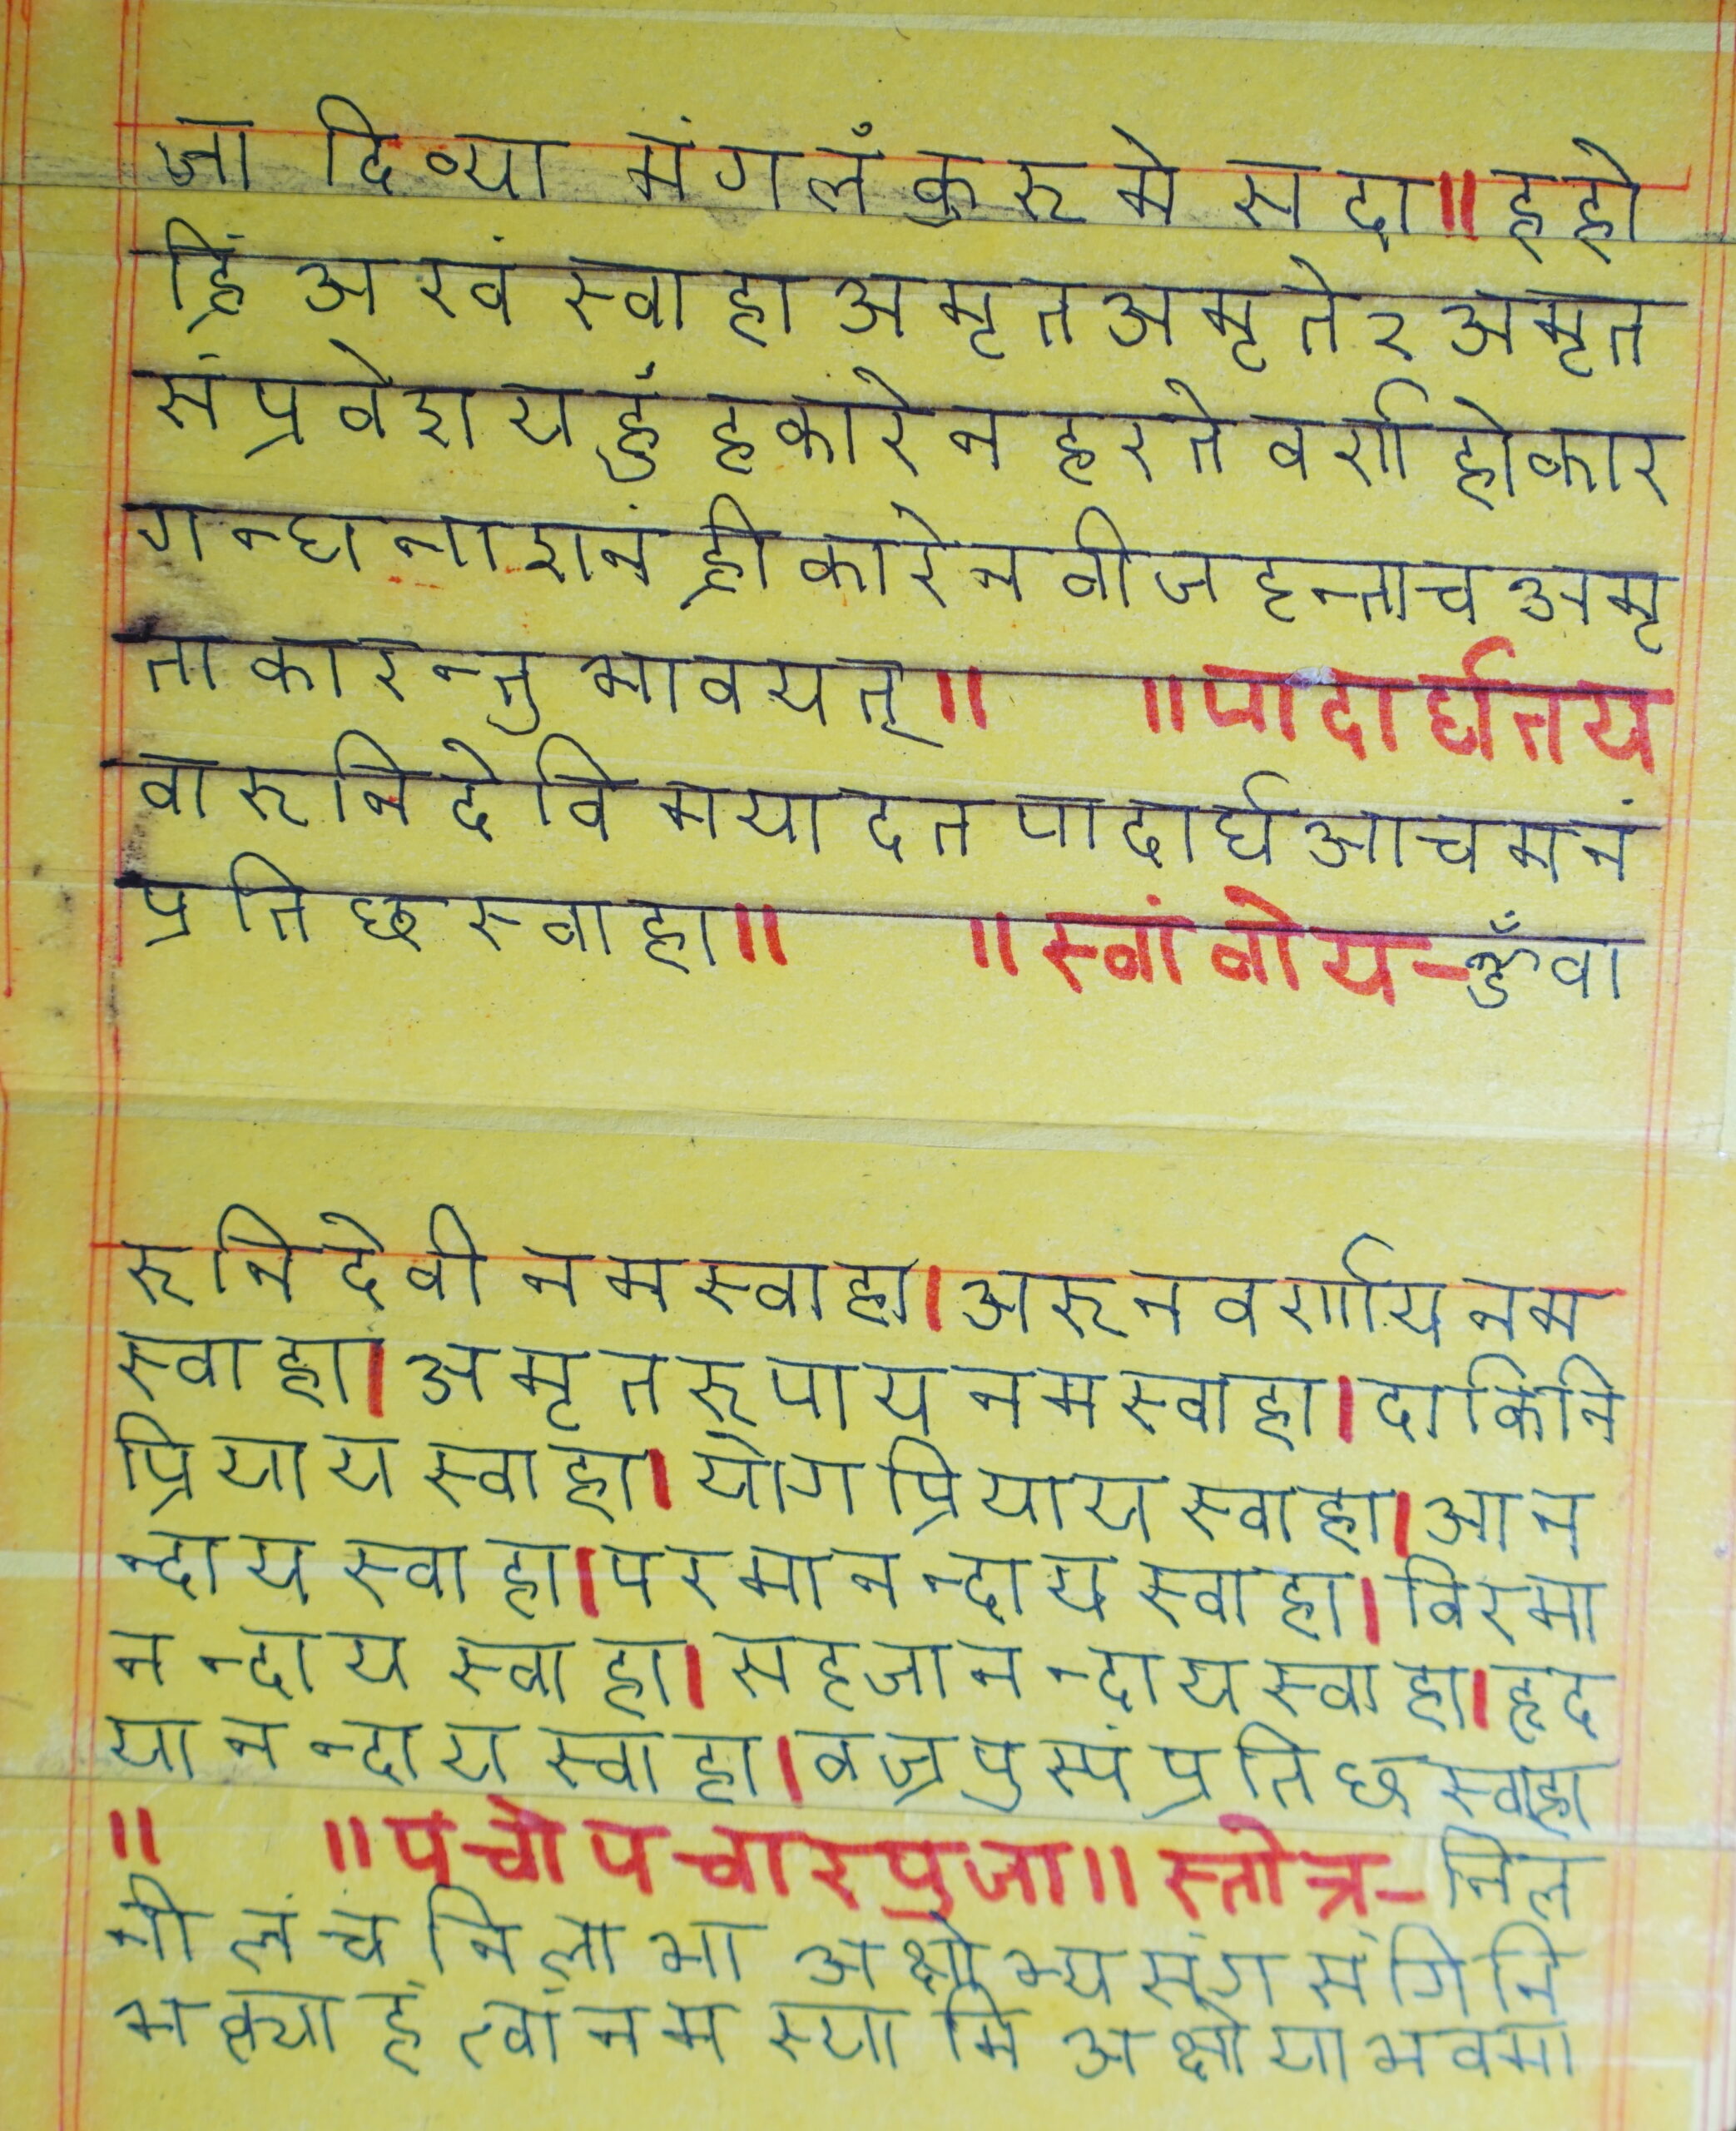 जा दिव्या मंगलँ कुरु मे सदा॥ ह हो
ह्रिं अ खं स्वाहा अमृत अमृते २ अमृत
संप्रवेशय हुँ हकारेन हरते वर्ण होकार
गन्ध नाशनं ह्रीकारेन वीज हन्ताच अमृ
ताकारन्तु भावयत्॥ ॥पादार्घतय
वारुनि देवि मया दत पादार्घ आचमनं
प्रतिछ स्वाहा॥ ॥स्वां वोय-ॐ वा
रुनि देवी नम स्वाहा। अरुन वर्णाय नम
स्वाहा। अमृत रुपाय नम स्वाहा। दाकिनि
प्रियाय स्वाहा। योग प्रियाय स्वाहा। आन
न्दाय स्वाहा। परमानन्दाय स्वाहा। विरमा
नन्दाय स्वाहा। सहजानन्दाय स्वाहा। हृद
यानन्दाय स्वाहा। वज्रपुस्पं प्रतिछ स्वाहा
॥ ॥पंचोपचार पुजा॥ स्तोत्र- निल
नी लं च निलाभा अक्षोभ्य संग संगिनि
भक्त्याहं त्वां नमस्यामि अक्षोया भवमा